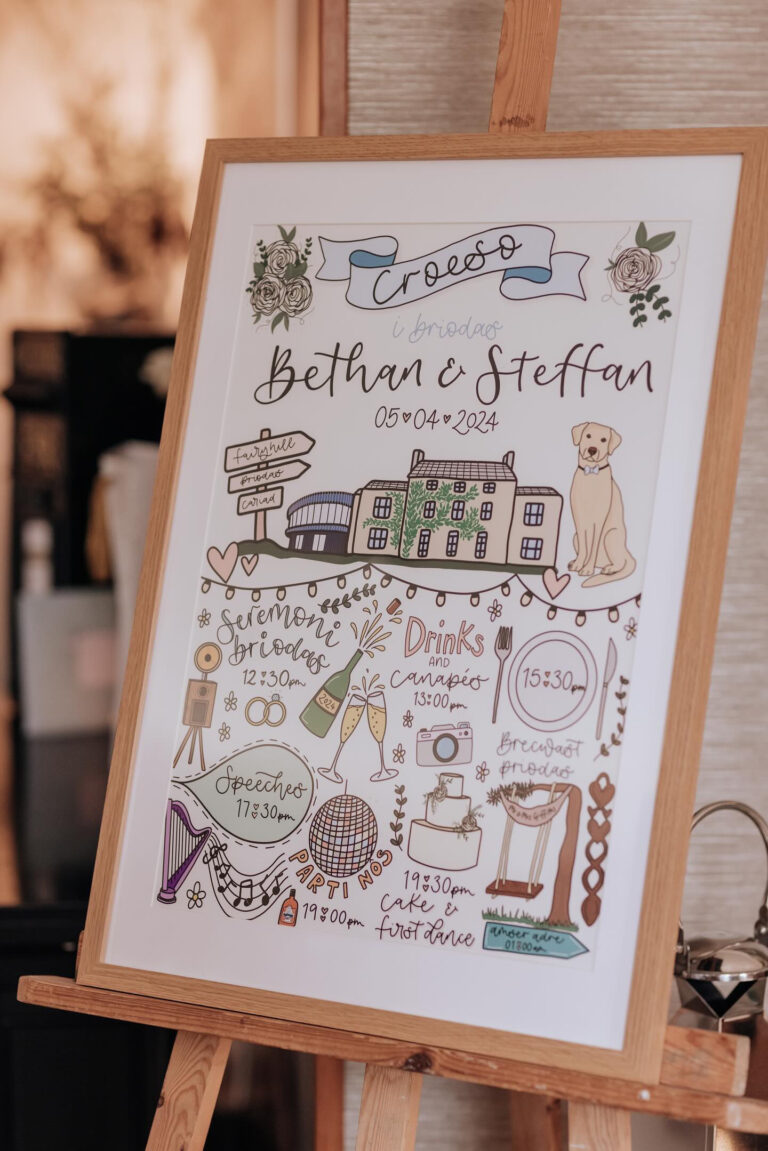 Croeso
i briodas
Bethan & Steffan
05♥04♥2024
fairyhill
priodas
cariad
Seremoni
briodas
12:30pm
2024
Drinks
AND
Canapés
13:00pm
15:30pm
Brecwast
priodas
Speeches
17:30pm
PARTI NOS
19:00pm
19:30pm
cake &
first dance
amser adre
01:00am